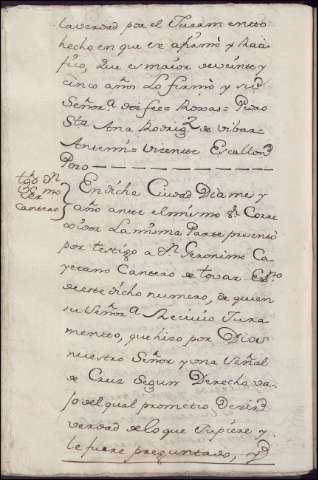 la verdad por el Juramento
hecho en que se afirmó y Rati
ficó, que es maior de veinte y
cinco años lo firmó y su
Señorª Rosas= Pedro
Stª Ana Rodrigz de vibar=
Antemi= vicente Escallon
Poro
tgº Dn
Gmo
Cantero
En dicha Ciudad Dia mes y
año ante el mismo Sr Corre
xidor La misma Parte presentó
por testigo a Dn Geronimo Ca
yetano Cantero de tovar Esno
de este dicho numero, de quien
su Señorª Recivió Jura
mento, que hizo por Dios
nuestro Señor y una Señal
de Cruz segun Derecho va
jo del qual prometio Decir
verdad de lo que supiere y
le fuere preguntado, y